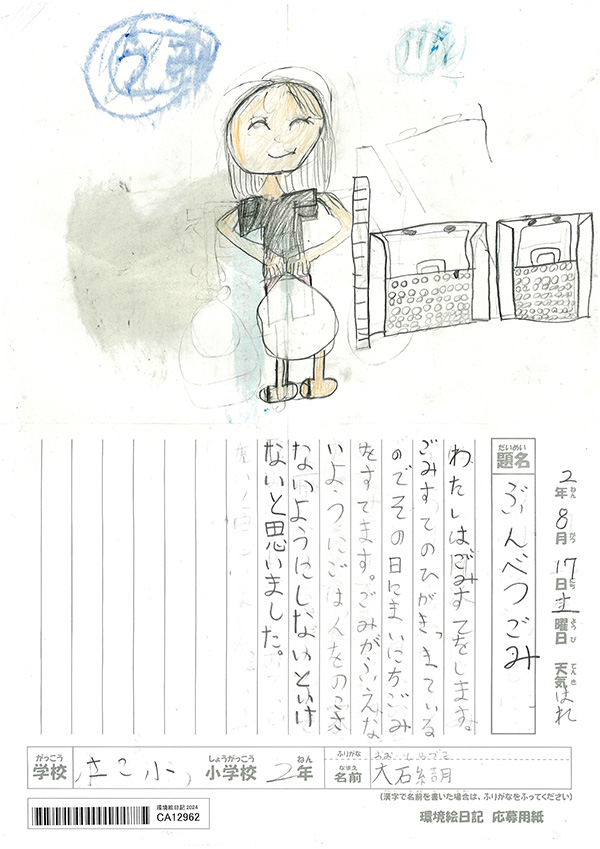 2年 8月 17日 土曜日 天気 はれ
題名 ぶんべつごみ
わたしはごみすてをします。
ごみすてのひがきまっている
のでその日にまいにちごみ
をすてます。ごみがふえな
いようにごはんをのこさ
ないようにしないといけ
ないと思いました。
学校 小学校 2年 名前 大石結月
(漢字で名前を書いた場合は、ふりがなをふってください)
環境絵日記 応募用紙
環境絵日記2024
CA12962